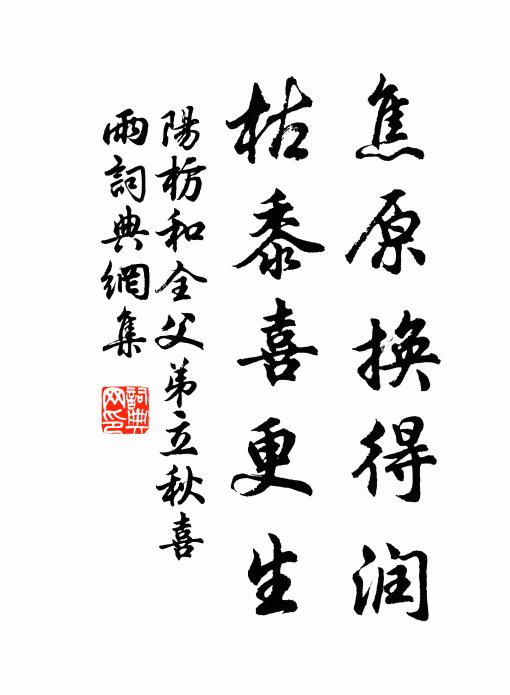 焦原換得润
枯黍喜更生
陽枋和全父弟立秋喜
雨詞典網集
詞典网印